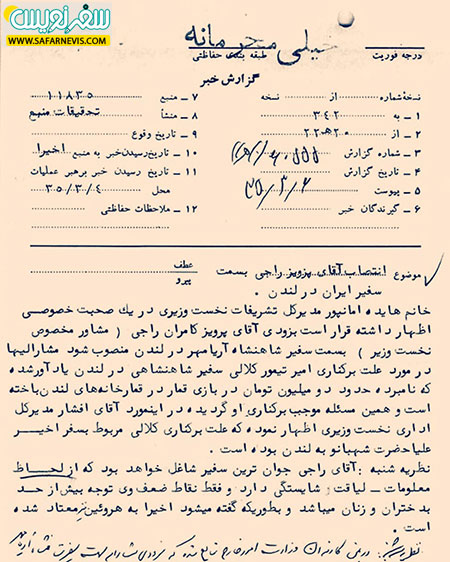 سفرنویس
WWW.SAFARNEVIS.COM
خیلی محرمانه
درجه فوریت
طبقه بندی حفاظتی
گزارش خبر
نسخهٔ شماره از نسخه
۱ - به ۳۴۲
۲ - از ۲۰ ه ۲۲
۳ - شماره گزارش
۴ - تاریخ گزارش
۵ - پیوست
۶ - گیرندگان خبر
۷ - منبع ۱۱۸۳۵
۸ - منشأ تحقیقات منبع
۹ - تاریخ وقوع
۱۰ - تاریخ رسیدن خبر به منبع اخیرا
۱۱ - تاریخ رسیدن خبر برهبر عملیات
محل ۳۵/۳/۴
۱۲ - ملاحظات حفاظتی
موضوع انتصاب آقای پرویز راجی بسمت
سفیر ایران در لندن .
عطف
پیرو
خانم هایده امانپور مدیرکل تشریفات نخست وزیری در یك صحبت خصوصی
اظهار داشته قرار است بزودی آقای پرویز کامران راجی ( مشاور مخصوص
نخست وزیر ) بسمت سفیر شاهنشاه آریامهر در لندن منصوب شود مشارالیها
در مورد علت برکناری امیر تیمور کلالی سفیر شاهنشاهی در لندن یادآور شده
که نامبرده حدود دو میلیون تومان در بازی قمار در قمارخانه‌های لندن باخته
است و همین مسئله موجب برکناری او گردیده در اینمورد آقای افشار مدیرکل
اداری نخست وزیری اظهار نموده که علت برکناری کلالی مربوط بسفر اخیر
علیاحضرت شهبانو به لندن بوده است .
نظریه شنبه : آقای راجی جوان ترین سفیر شاغل خواهد بود که از لحاظ
معلومات - لیاقت و شایستگی دارد و فقط نقاط ضعف وی توجه بیش از حد
بدختران و زنان میباشد و بطوریکه گفته میشود اخیرا به هروئین نیز معتاد شده
است .